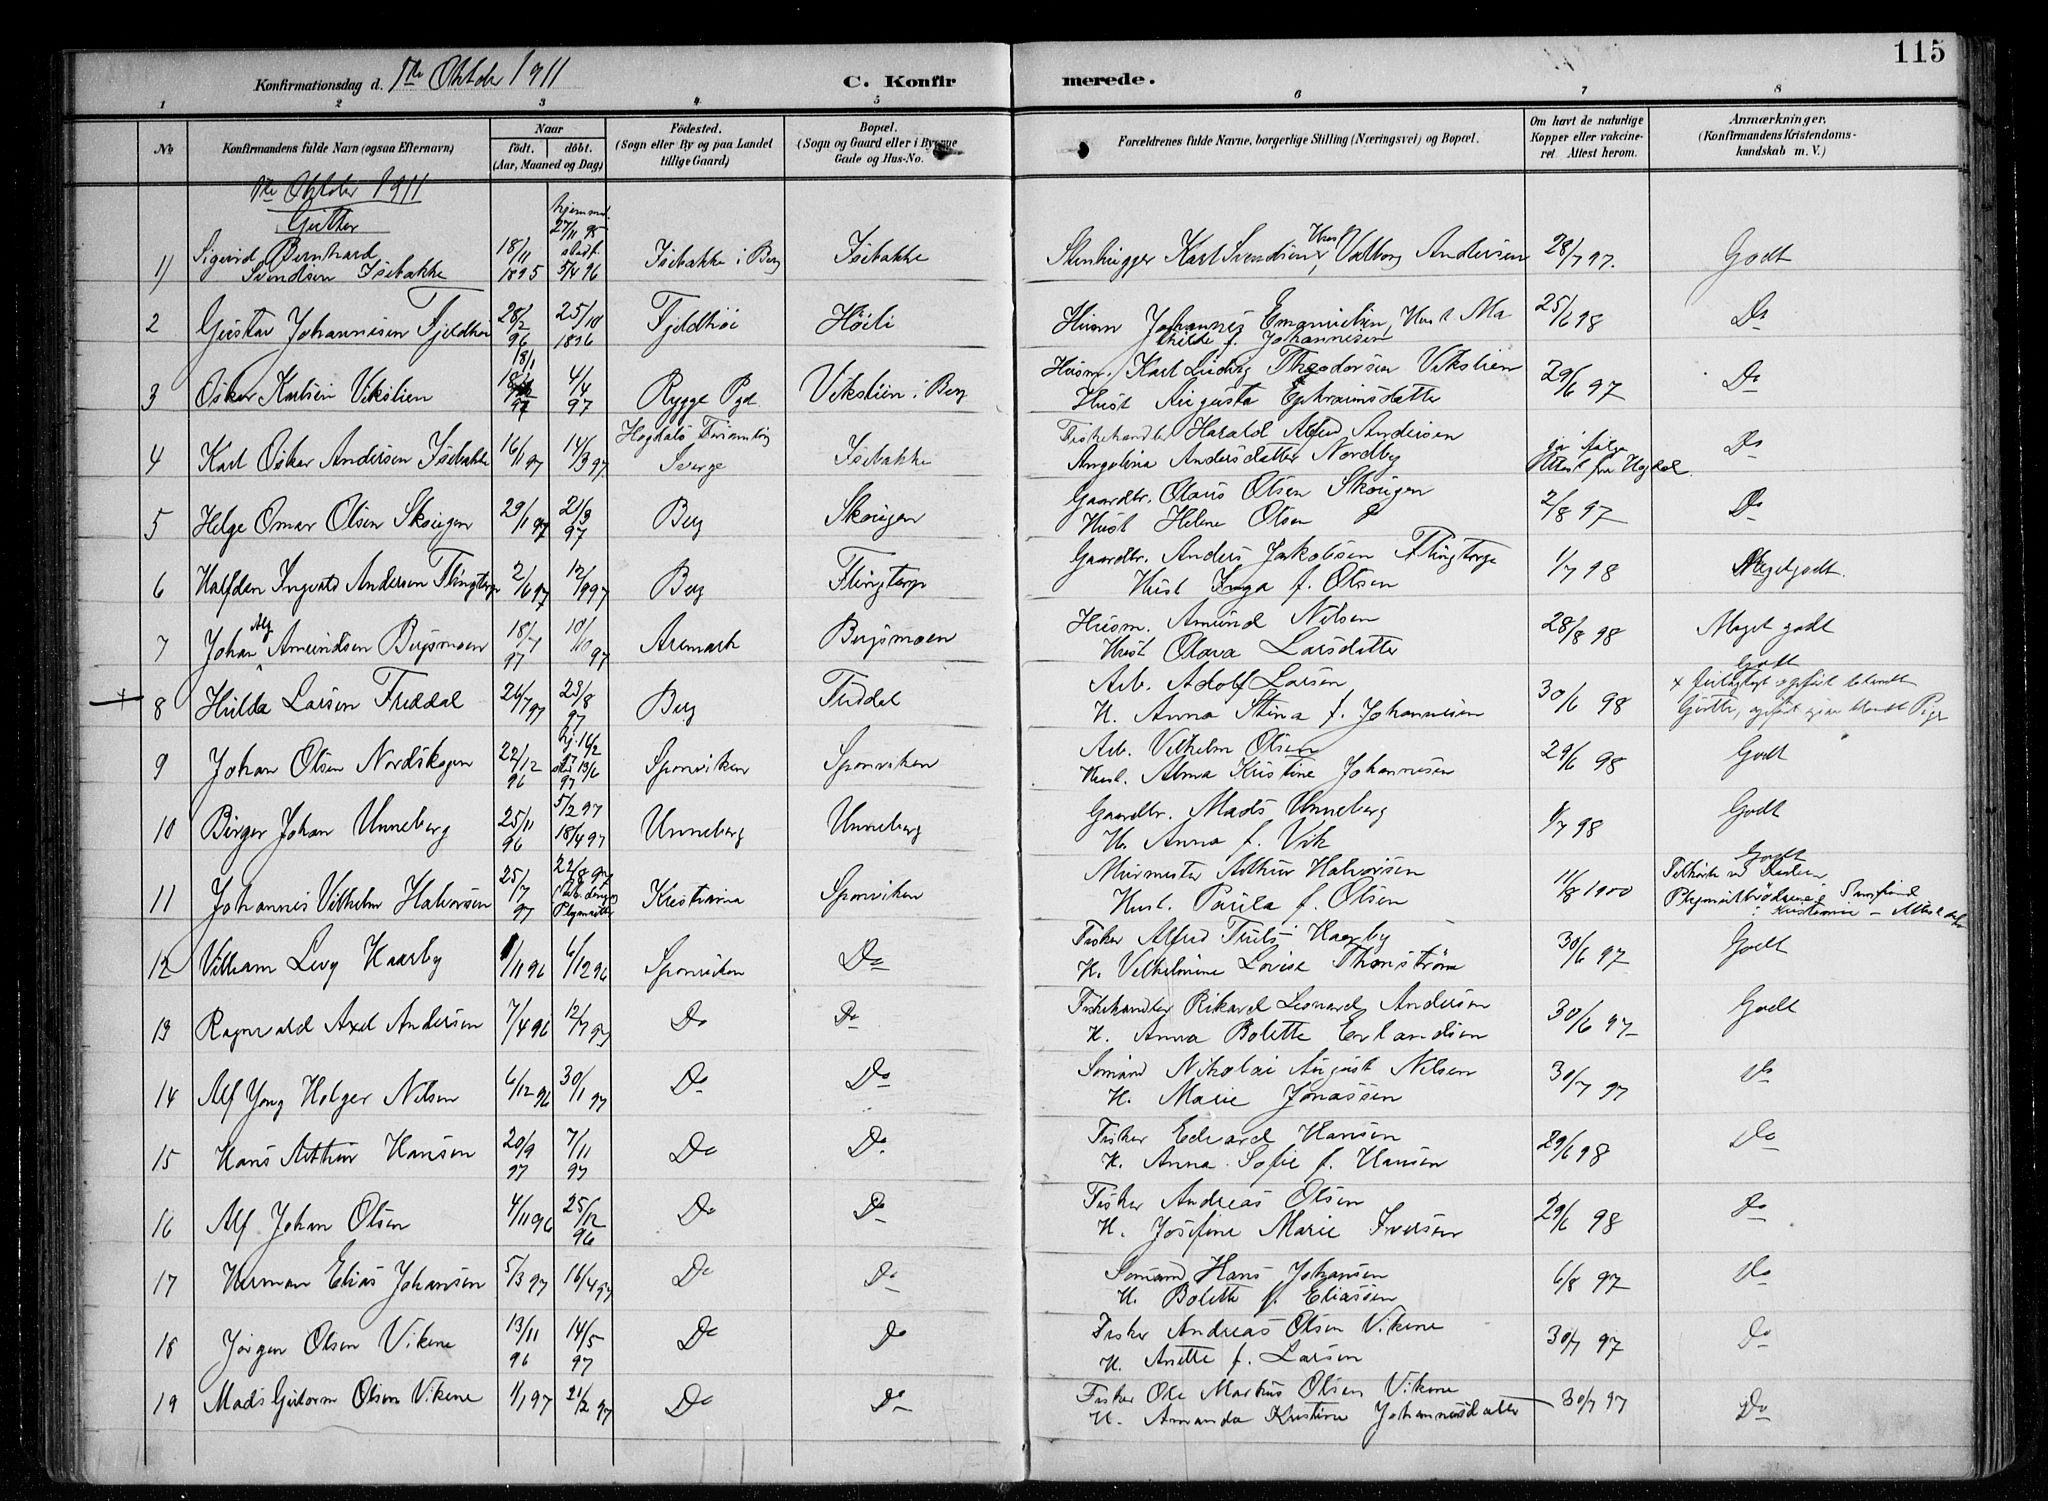 115
Konfirmationsdag d. 1ste Oktober 1911
C. Konfirmerede.
1 2 3 4 5 6 7 8
No
Konfirmandens fulde Navn (ogsaa Efternavn)
Naar
født. døbt.
(Aar, Maaned og Dag)
Fødested.
(Sogn eller By og paa Landet
tillige Gaard)
Bopæl.
(Sogn og Gaard eller i Byerne
Gade og Hus-No.
Forældrenes fulde Navne, borgerlige Stilling (Næringsvei) og Bopæl.
Om havt de naturlige
Kopper eller vakcine-
ret Attest herom.
Anmærkninger.
(Konfirmandens Kristendoms-
kundskab m. V.)
1ste Oktober 1911
Gutter
1) Sigurd Bernhard Svendsen Isebakke 18/11 1895 hjemmed. 27/11 95 stadf. 5/4 96 Isebakke i Berg Isebakke Stenhugger Karl Svendsen, Hust. Valborg Andersen 28/7 97. Godt
2 Gustav Johannesen Fjeldhøi 28/2 96 25/10 1896 Fjeldhøi Høili Husm Johannes Emanuelsen, Hust Ma
thilde f. Johannesen 25/6 98 Do
3 Oskar Karlsen Vikslien 18/1 97 4/4 97 Rygge Pgd. Vikslien i Berg Husm. Karl Ludvig Theodorsen Vikslien
Hust Augusta Ephraimsdatter 29/6 97 Do
4 Karl Oskar Andersen Isebakke 16/1 97 14/3 97. Hogdals Sverge Isebakke Fiskehandler Harald Alfred Andersen
Angelina Andersdatter Nordby Attest fra Hogdal. Do
5 Helge Omar Olsen Skougen 29/1 97 21/3 97 Berg Skougen Gaardbr. Olaus Olsen Skougen
Hust Helene Olsen 2/8 97 Do
6 Halfdan Ingvald Andersen Flingtorp 2/6 97 12/9 97 Berg Flingtorp Gaardbr. Anders Jakobsen Flingtorp
Hust Inga f. Olsen 1/7 98 Megetgodt.
7 Johan Alf Amundsen Bergsmoen 18/7 97 10/10 97 Aremark Bergsmoen Husm. Amund Nilsen
Hust Olava Larsdatter 28/8 98 Meget godt
8 Hulda Larsen Freddal 26/7 97 23/8 97 Berg Freddal Arb. Adolf Larsen
H. Anna Stina f. Johannesen 30/6 98 Godt
x feilagtigt opført blandt
Gutter, opført igjen blandt Piger
9 Johan Olsen Nordskogen 22/12 96 hj. 16/2 97 stad. 13/6 97 Sponviken Sponviken Arb. Vilhelm Olsen
Hust. Alma Kristine Johannesen 29/6 98 Godt
10 Birger Johan Unneberg 25/11 96 5/2 97 18/4 97 Unneberg Unneberg Gaardbr. Mads Unneberg
H. Anna f. Vik 1/7 98 Godt
11 Johannes Vilhelm Halvorsen 25/7 97 22/8 97 Kristiania Sponviken Murmester Arthur Halvorsen
Hust. Paula f. Olsen 11/8 1900 Godt
12 Villiam Levy Kaarby 1/11 96 6/12 96 Sponviken Do Fisker Alfred Truls Kaarby
H. Vilhelmine Lovise Thornstrøm 30/6 97 Godt
13 Ragnvald Axel Andersen 7/4 96 12/7 97 Do Do Fiskehandler Rikard Leonard Andersen
H. Anna Bolette Erlandsen 30/6 97 Godt
14 Alf Yong Holger Nilsen 6/12 96 30/1 97 Do Do Sømand Nikolai August Nilsen
H. Marie Jonassen 30/7 97 Do
15 Hans Arthur Hansen 20/9 97 7/11 97 Do Do Fisker Edvard Hansen
H. Anna Sofie f. Hansen 29/6 98 Do
16 Alf Johan Olsen 4/11 96 25/12 96 Do Do Fisker Andreas Olsen
H. Josefine Marie Iversen 29/6 98 Do
17 Herman Elias Johansen 5/3 97 16/4 97 Do Do Sømand Hans Johansen
H. Bolette f. Eliassen 6/8 97 Do
18 Jørgen Olsen Vikene 13/11 96 14/5 97 Do Do Fisker Andreas Olsen Vikene
H. Anette f. Larsen 30/7 97 Do
19 Mads Gutorm Olsen Vikene 1/1 97 21/2 97 Do Do Fisker Ole Markus Olsen Vikene
H. Amanda Kristine Johannesdatter 30/7 97 Do